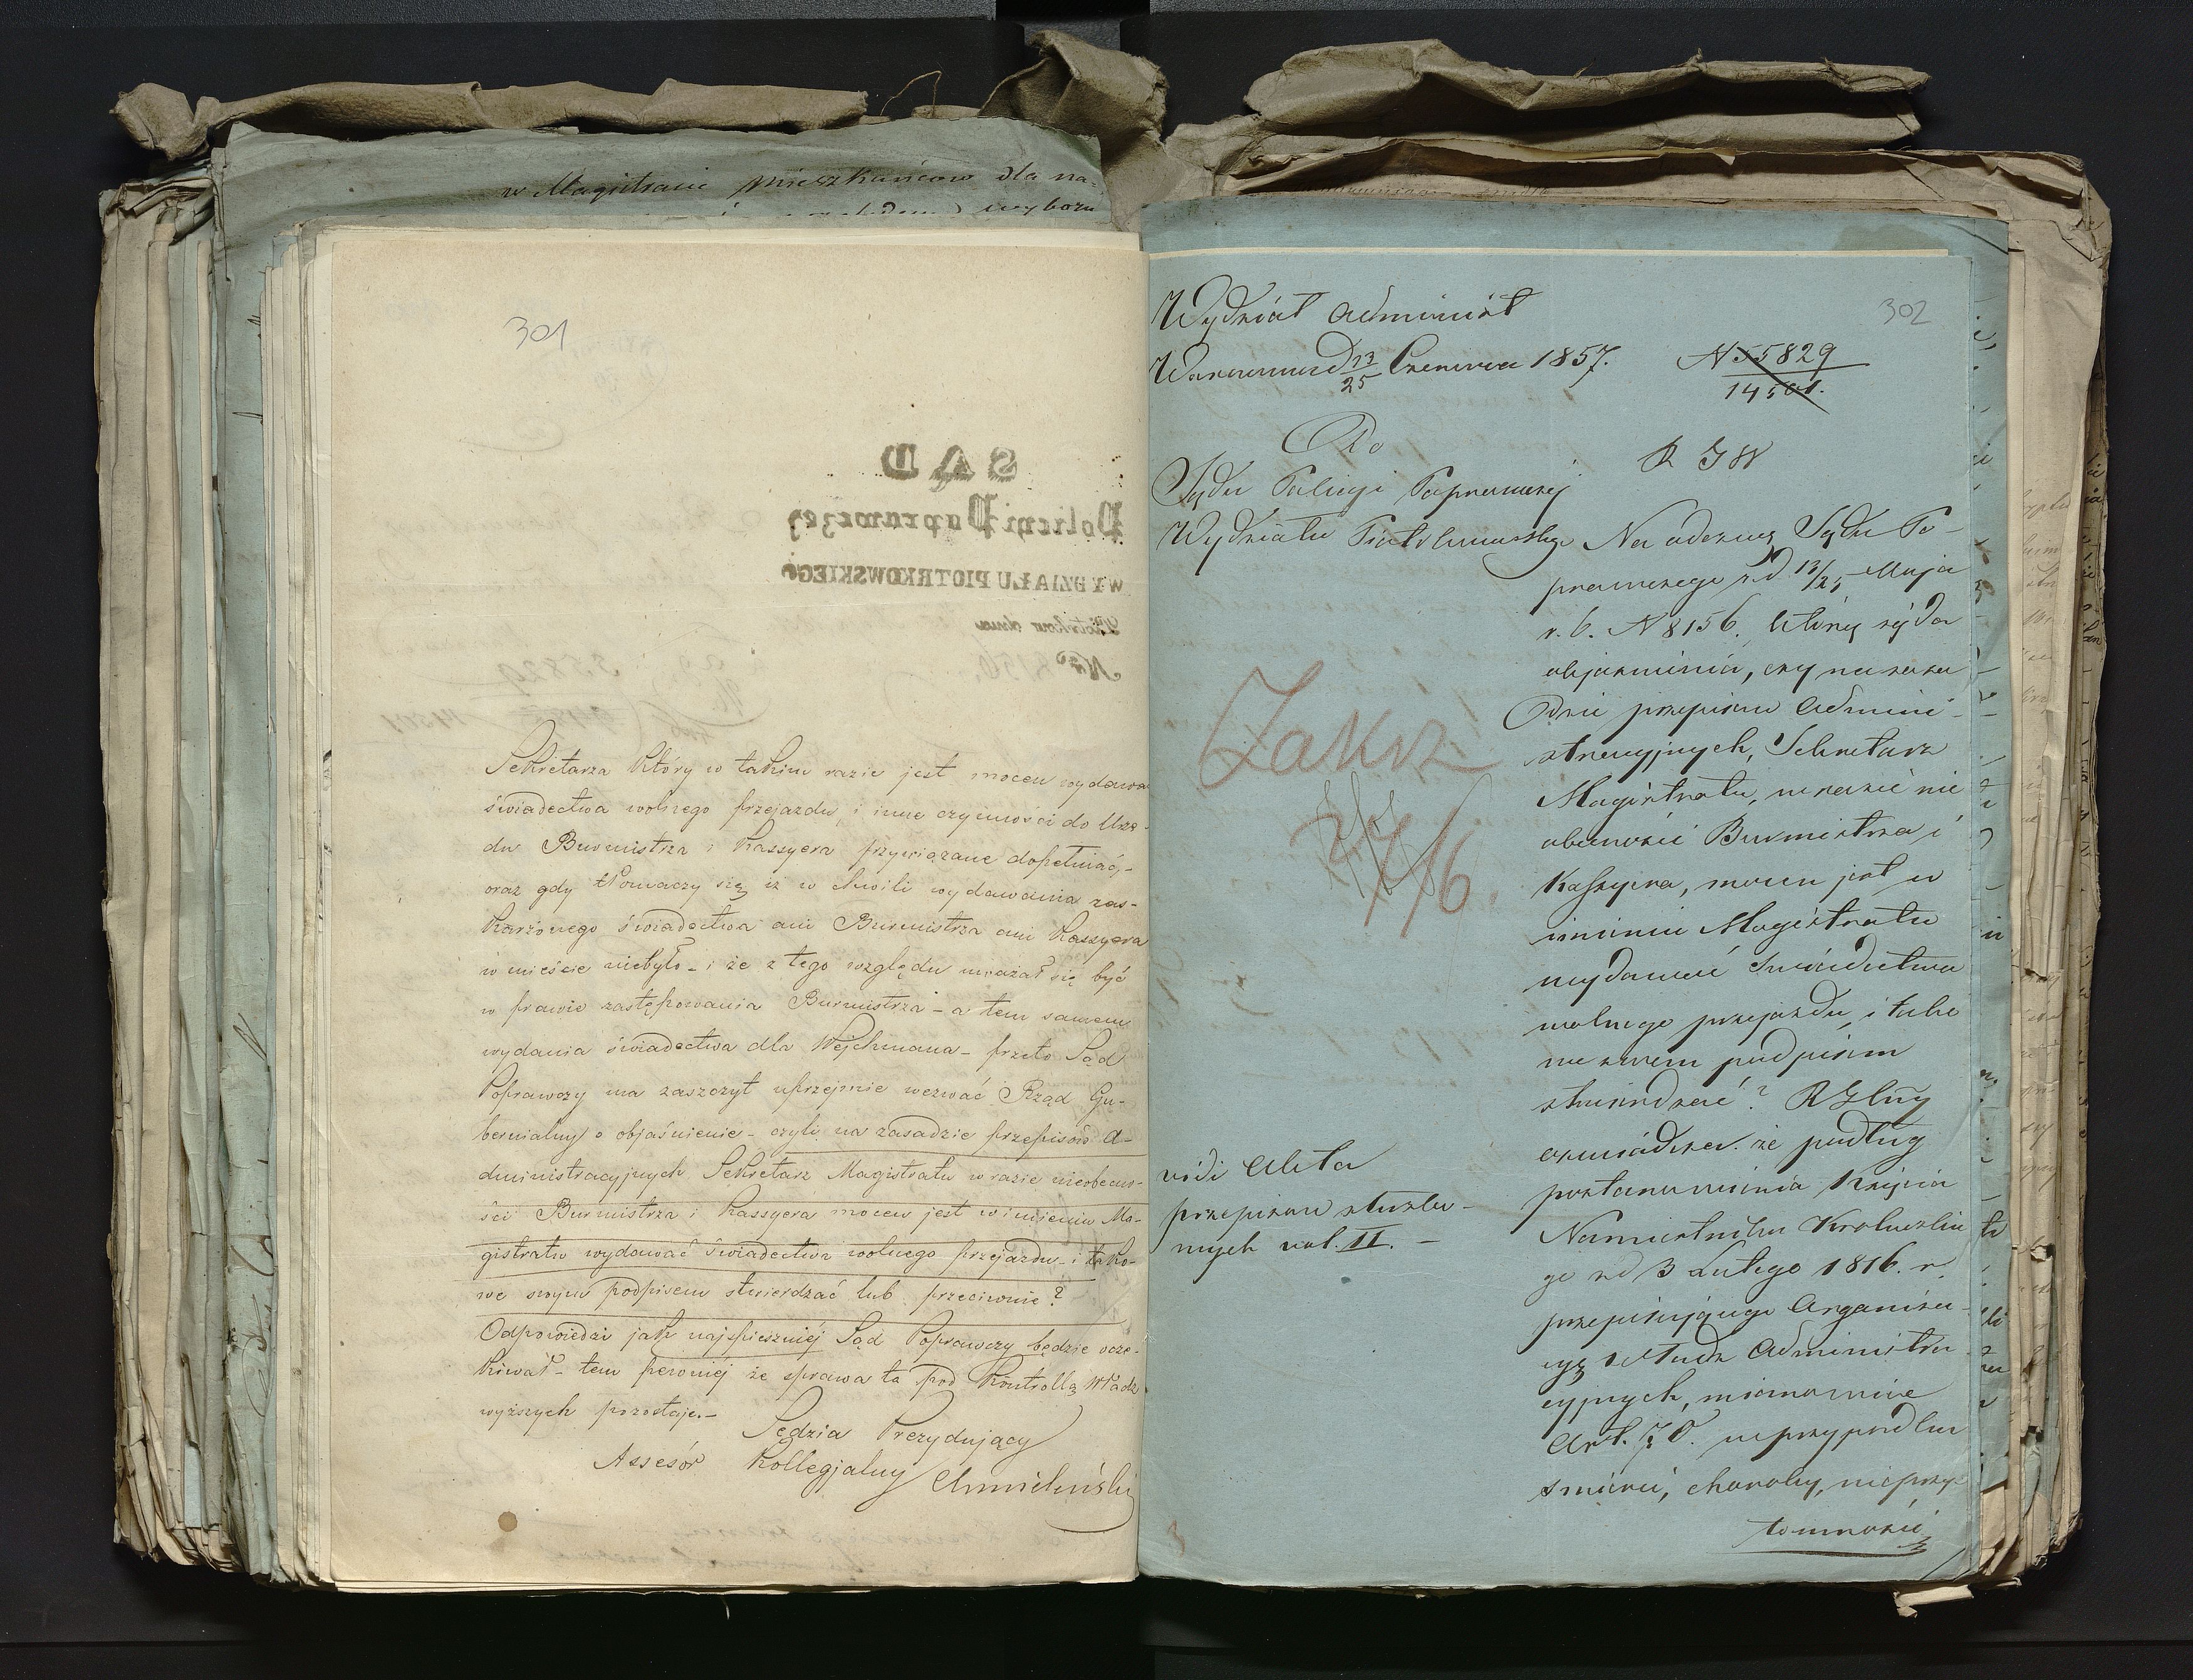 w Magistracie mieszkańców dla na-
wyboru
301
SĄD
Policyi Poprawczej
WYDZIAŁU PIOTRKOWSKIEGO
Piotrków dnia
Nro 8156.
55829
14501
Sekretarza który w takim razie jest mocen wydawa
świadectwa wolnego przejazdu, i inne czynności do Urzę-
du Burmistrza i Kassyera przywiązane dopełniać,-
oraz gdy tłomaczy się iż w chwili wydawania zas-
karżonego świadectwa ani Burmistrza ani Kassyera
w mieście niebyło - i że z tego względu uważał się być
w prawie zastępowania Burmistrza - a tem samem
wydania świadectwa dla Wejchmana - przeto Sąd
Poprawczy ma zaszczyt uprzejmie wezwać Rząd Gu-
bernialny o objaśnienie - czyli na zasadzie przepisów A-
dministracyjnych Sekretarz Magistratu w razie nieobecno-
ści Burmistrza i Kassyera mocen jest w imieniu Ma-
gistratu wydawać świadectwa wolnego przejazdu - i tako-
we swym podpisem stwierdzać lub przeciwnie?
Odpowiedzi jak najspieszniéj Sąd Poprawczy będzie ocze-
kiwał - tem pewniéj że sprawa ta pod kontrollą Władz
wyższych pozostaje.-
Sędzia Prezydujący
Assesór Kollegjalny Chmieleński
302
Wydział Administ
Warszawa d 13/25 Czerwca 1857.
N 55829
14501.
Do
Sądu Policyi Poprawczej
Wydziału Piotrkowskiego
R G W
Na odezwę Sądu Po-
prawczego z d 13/25 Maja
r. b. N 8156. którą żąda
objaśnienia, czy na zasa
dzie przepisów Admini-
stracyjnych, Sekretarz
Magistratu, w razie nie
obecności Burmistrza i
Kassyera, mocen jest w
imieniu Magistratu
wydawać świadectwa
wolnego przejazdu, i tako
we swem podpisem
stwierdzać? RGlny
oswiadcza że podług
postanowienia Księcia
Namiestnika Królewskie
go z d 3 Lutego 1816. r.
przepisującego Organiza-
cyę Władz Administra
cyjnych, mianowicie
Art. 70. w przypadku
śmierci, choroby, nieprzy-
tomności
Zakrz
27/6.
vidi Akta
przepisów służbo-
wych vol. II. -
3